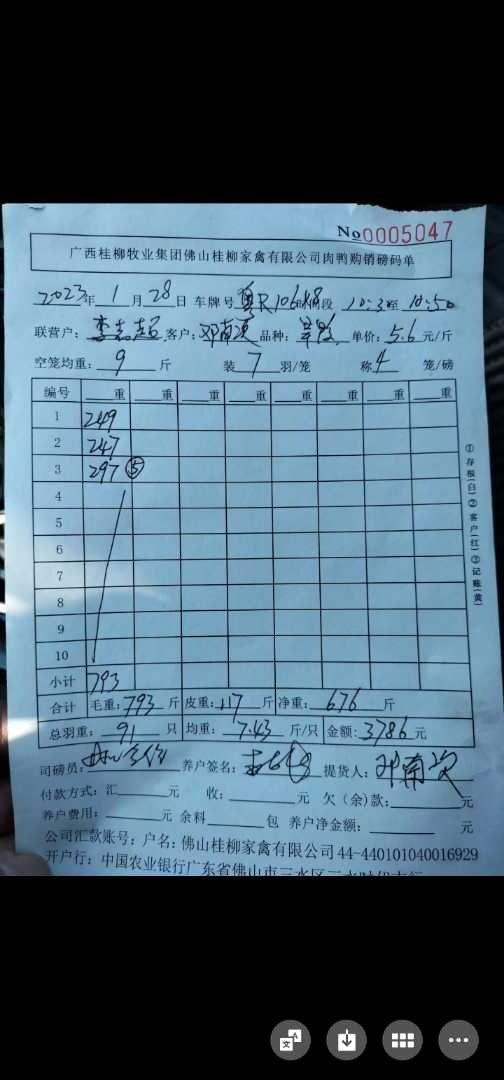 No 0005047
广西桂柳牧业集团佛山桂柳家禽有限公司肉鸭购销磅码单
2023年 1 月 28 日 车牌号 时间段 10:30至 10:50
联营户: 李志超 客户: 邓南 品种: 单价: 5.6 元/斤
空笼均重: 9 斤 装 7 羽/笼 称 4 笼/磅
编号 重 重 重 重 重 重 重
1 249
2 247
3 297 ⑤
4
5
6
7
8
9
10
小计 793
合计 毛重: 793 斤 皮重: 117 斤 净重: 676 斤
总羽重: 91 只 均重: 7.43 斤/只 金额: 3786 元
司磅员: 养户签名: 提货人: 邓南
付款方式: 汇 元 收: 元 欠(余)款: 元
养户费用: 元 余料 包 养户净金额: 元
公司汇款账号: 户名: 佛山桂柳家禽有限公司 44-440101040016929
开户行: 中国农业银行广东省佛山市三水区
①存根(白)②客户(红)③记账(黄)